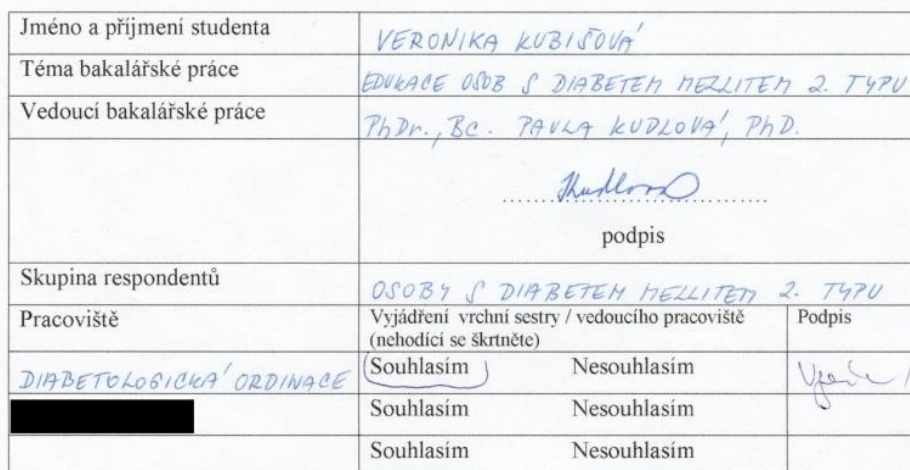 Jméno a příjmení studenta VERONIKA KUBIŠOVÁ
Téma bakalářské práce EDUKACE OSOB S DIABETEM MELLITEM 2. TYPU
Vedoucí bakalářské práce PhDr., BC. PAVLA KUDLOVÁ, PhD.
podpis
Skupina respondentů OSOBY S DIABETEM MELLITEM 2. TYPU
Pracoviště Vyjádření vrchní sestry / vedoucího pracoviště Podpis
(nehodící se škrtněte)
DIABETOLOGICKÁ ORDINACE Souhlasím Nesouhlasím
Souhlasím Nesouhlasím
Souhlasím Nesouhlasím